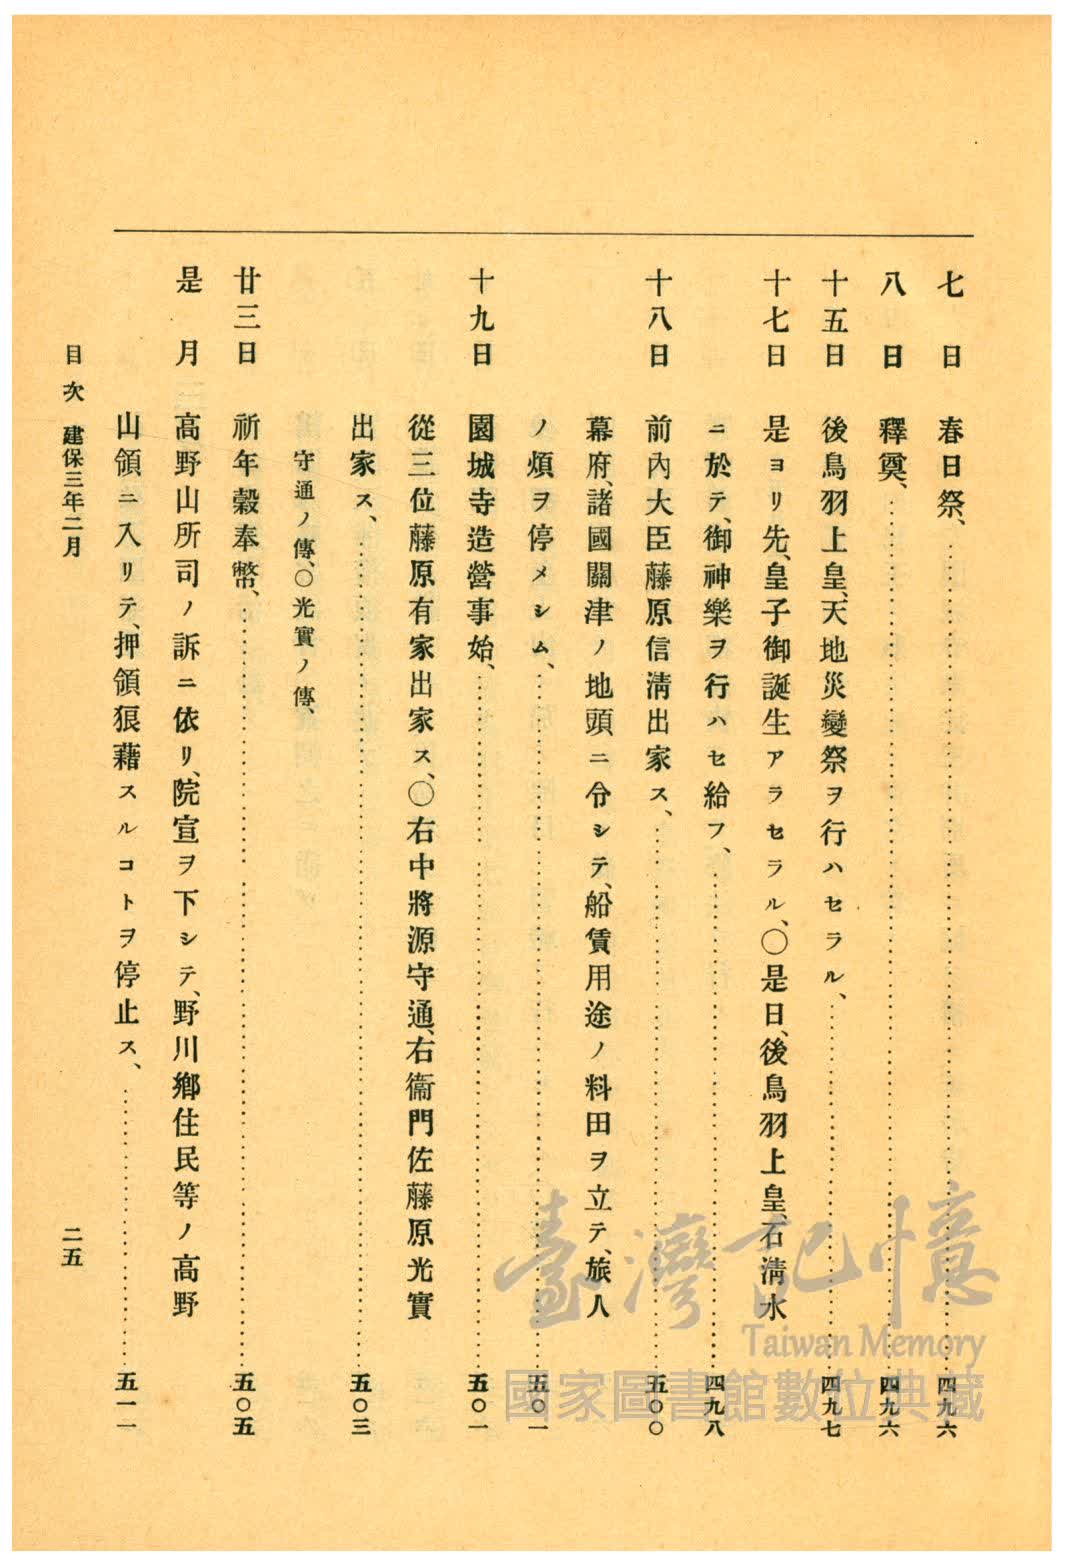 七日　春日祭、……四九六
八日　釋奠、……四九六
十五日　後鳥羽上皇、天地災變祭ヲ行ハセラル、……四九七
十七日　是ヨリ先、皇子御誕生アラセラル、〇是日、後鳥羽上皇、石淸水
ニ於テ、御神樂ヲ行ハセ給フ、……四九八
十八日　前內大臣藤原信淸出家ス、……五〇〇
幕府、諸國關津ノ地頭ニ令シテ、船賃用途ノ料田ヲ立テ、旅人
ノ煩ヲ停メシム、……五〇一
十九日　園城寺造營事始、……五〇一
從三位藤原有家出家ス、〇右中將源守通、右衞門佐藤原光實
出家ス、……五〇三
守通ノ傳、〇光實ノ傳、
廿三日　祈年穀奉幣、……五〇五
是月　高野山所司ノ訴ニ依リ、院宣ヲ下シテ、野川鄕住民等ノ高野
山領ニ入リテ、押領狼藉スルコトヲ停止ス、……五一一
目次　建保三年二月　二五
臺灣記憶
Taiwan Memory
國家圖書館數位典藏